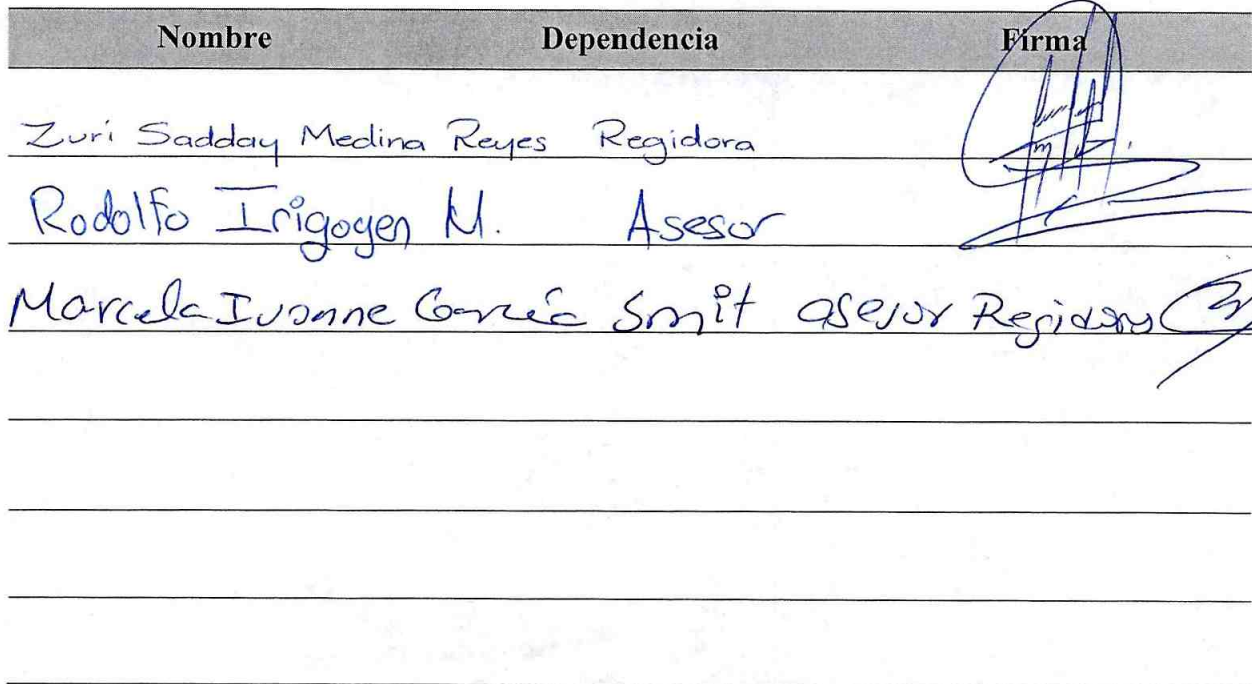 Nombre Dependencia Firma
Zuri Sadday Medina Reyes Regidora
Rodolfo Irigoyen M. Asesor
Marcela Ivonne García Smit asesor Regidora